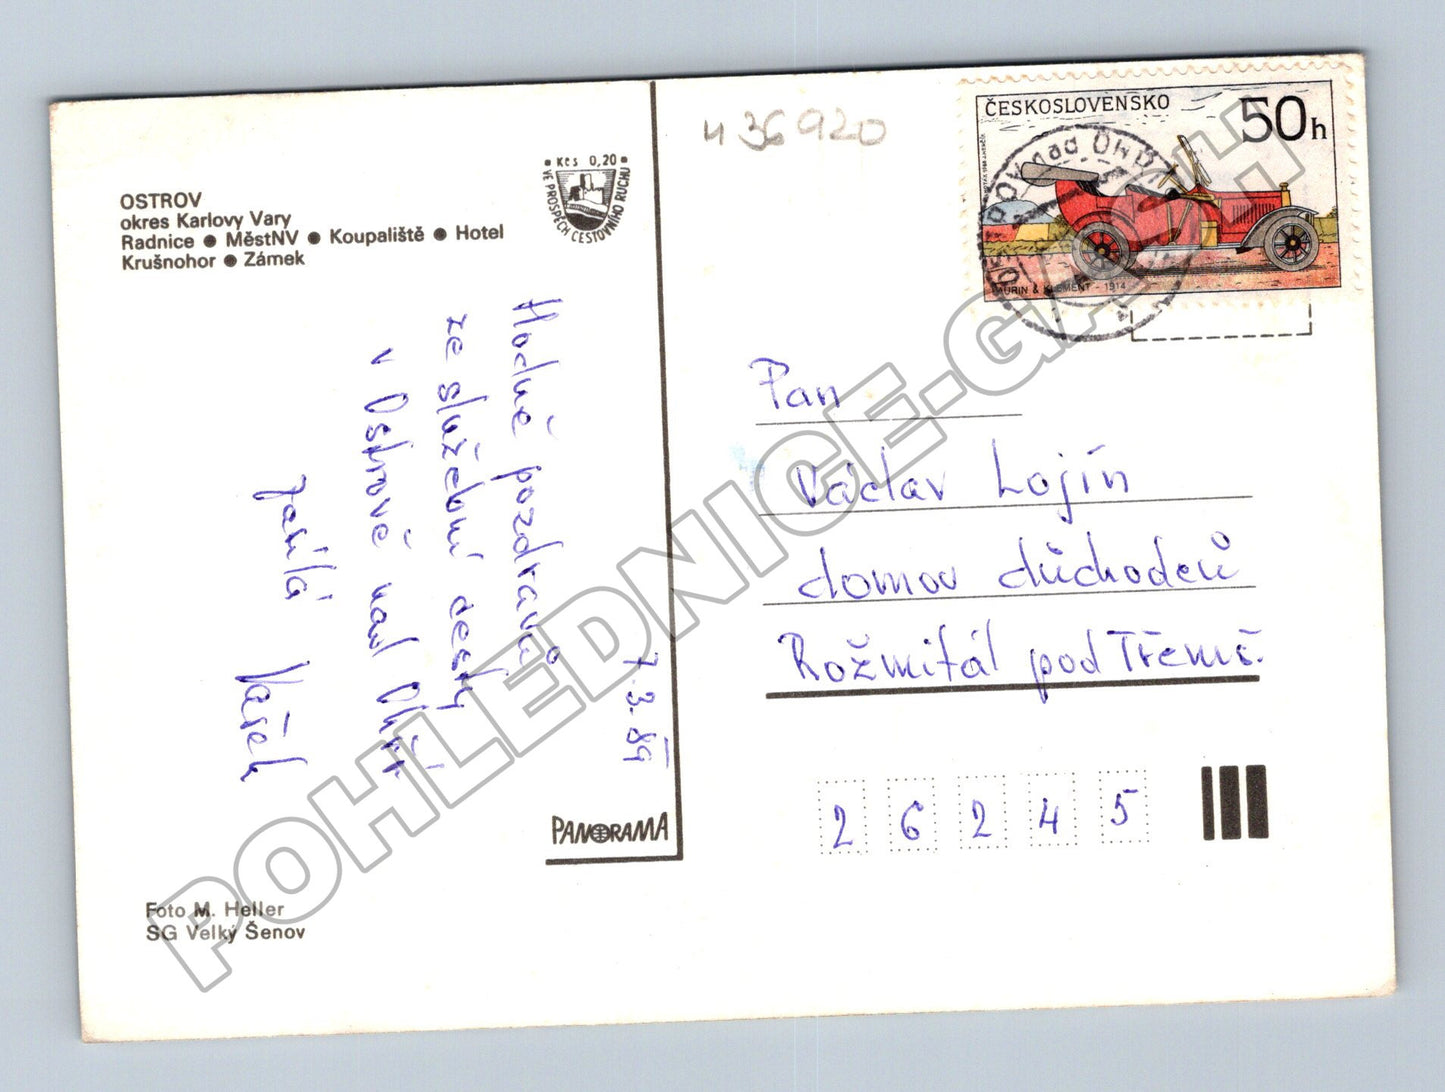 OSTROV
okres Karlovy Vary
Radnice ● MěstNV ● Koupaliště ● Hotel
Krušnohor ● Zámek
Kčs 0,20
VE PROSPĚCH CESTOVNÍHO RUCHU
436920
ČESKOSLOVENSKO
50h
LAURIN & KLEMENT - 1914
OSTROV nad OHŘÍ
Hodně pozdravů
ze služební cesty
v Ostrově nad Ohří
Vašek
7.3.89
Pan
Václav Lojín
domov důchodců
Rožmitál pod Třemš.
26245
PANORAMA
Foto M. Heller
SG Velký Šenov
POHLEDNICE-GASCH